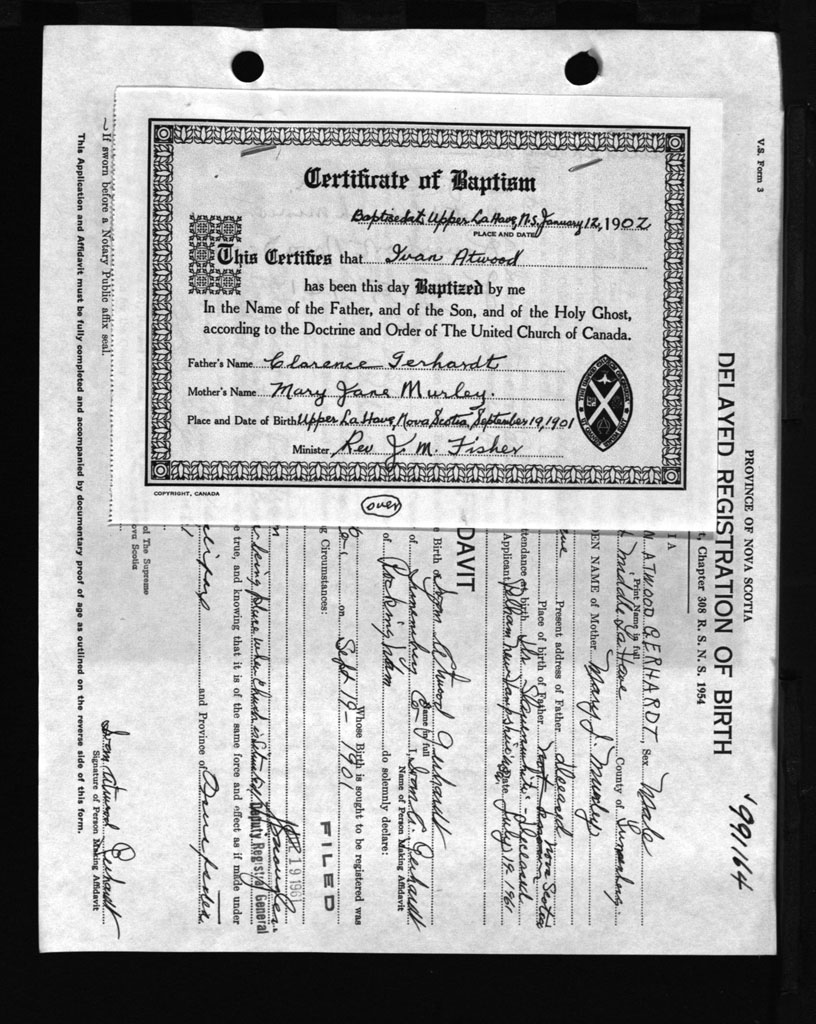 Certificate of Baptism
Baptized at Upper LaHave, N.S. January 12, 1902
PLACE AND DATE
This Certifies that Ivan Atwood
has been this day Baptized by me
In the Name of the Father, and of the Son, and of the Holy Ghost,
according to the Doctrine and Order of The United Church of Canada.
Father's Name Clarence Gerhardt
Mother's Name Mary Jane Murley.
Place and Date of Birth Upper LaHave, Nova Scotia, September 19, 1901
Minister Rev J. M. Fisher
COPYRIGHT, CANADA
over
V.S. Form 3
'991164
PROVINCE OF NOVA SCOTIA
DELAYED REGISTRATION OF BIRTH
Chapter 308 R. S. N. S. 1954
N ATWOOD GERHARDT, Sex Male
Print Name in full
Middle LaHave County of Lunenburg.
DEN NAME of Mother Mary J. Murley
Present address of Father deceased
Place of birth of Father Nova Scotia
ttendance at birth deceased
Applicant Pelham New Hampshire Date July 12 1961
DAVIT
e Birth of Ivan Atwood Gerhardt
Name in full
of Lunenburg Co I, Ivan A. Gerhardt
Name of Person Making Affidavit
of Rockingham do solemnly declare:
Whose Birth is sought to be registered was
on Sept 19 - 1901
ng Circumstances:
FILED
19 1961
Deputy Registrar General
e true, and knowing that it is of the same force and effect as if made under
and Province of
of The Supreme
ova Scotia
Ivan Atwood Gerhardt
Signature of Person Making Affidavit
If sworn before a Notary Public affix seal.
This Application and Affidavit must be fully completed and accompanied by documentary proof of age as outlined on the reverse side of this form.